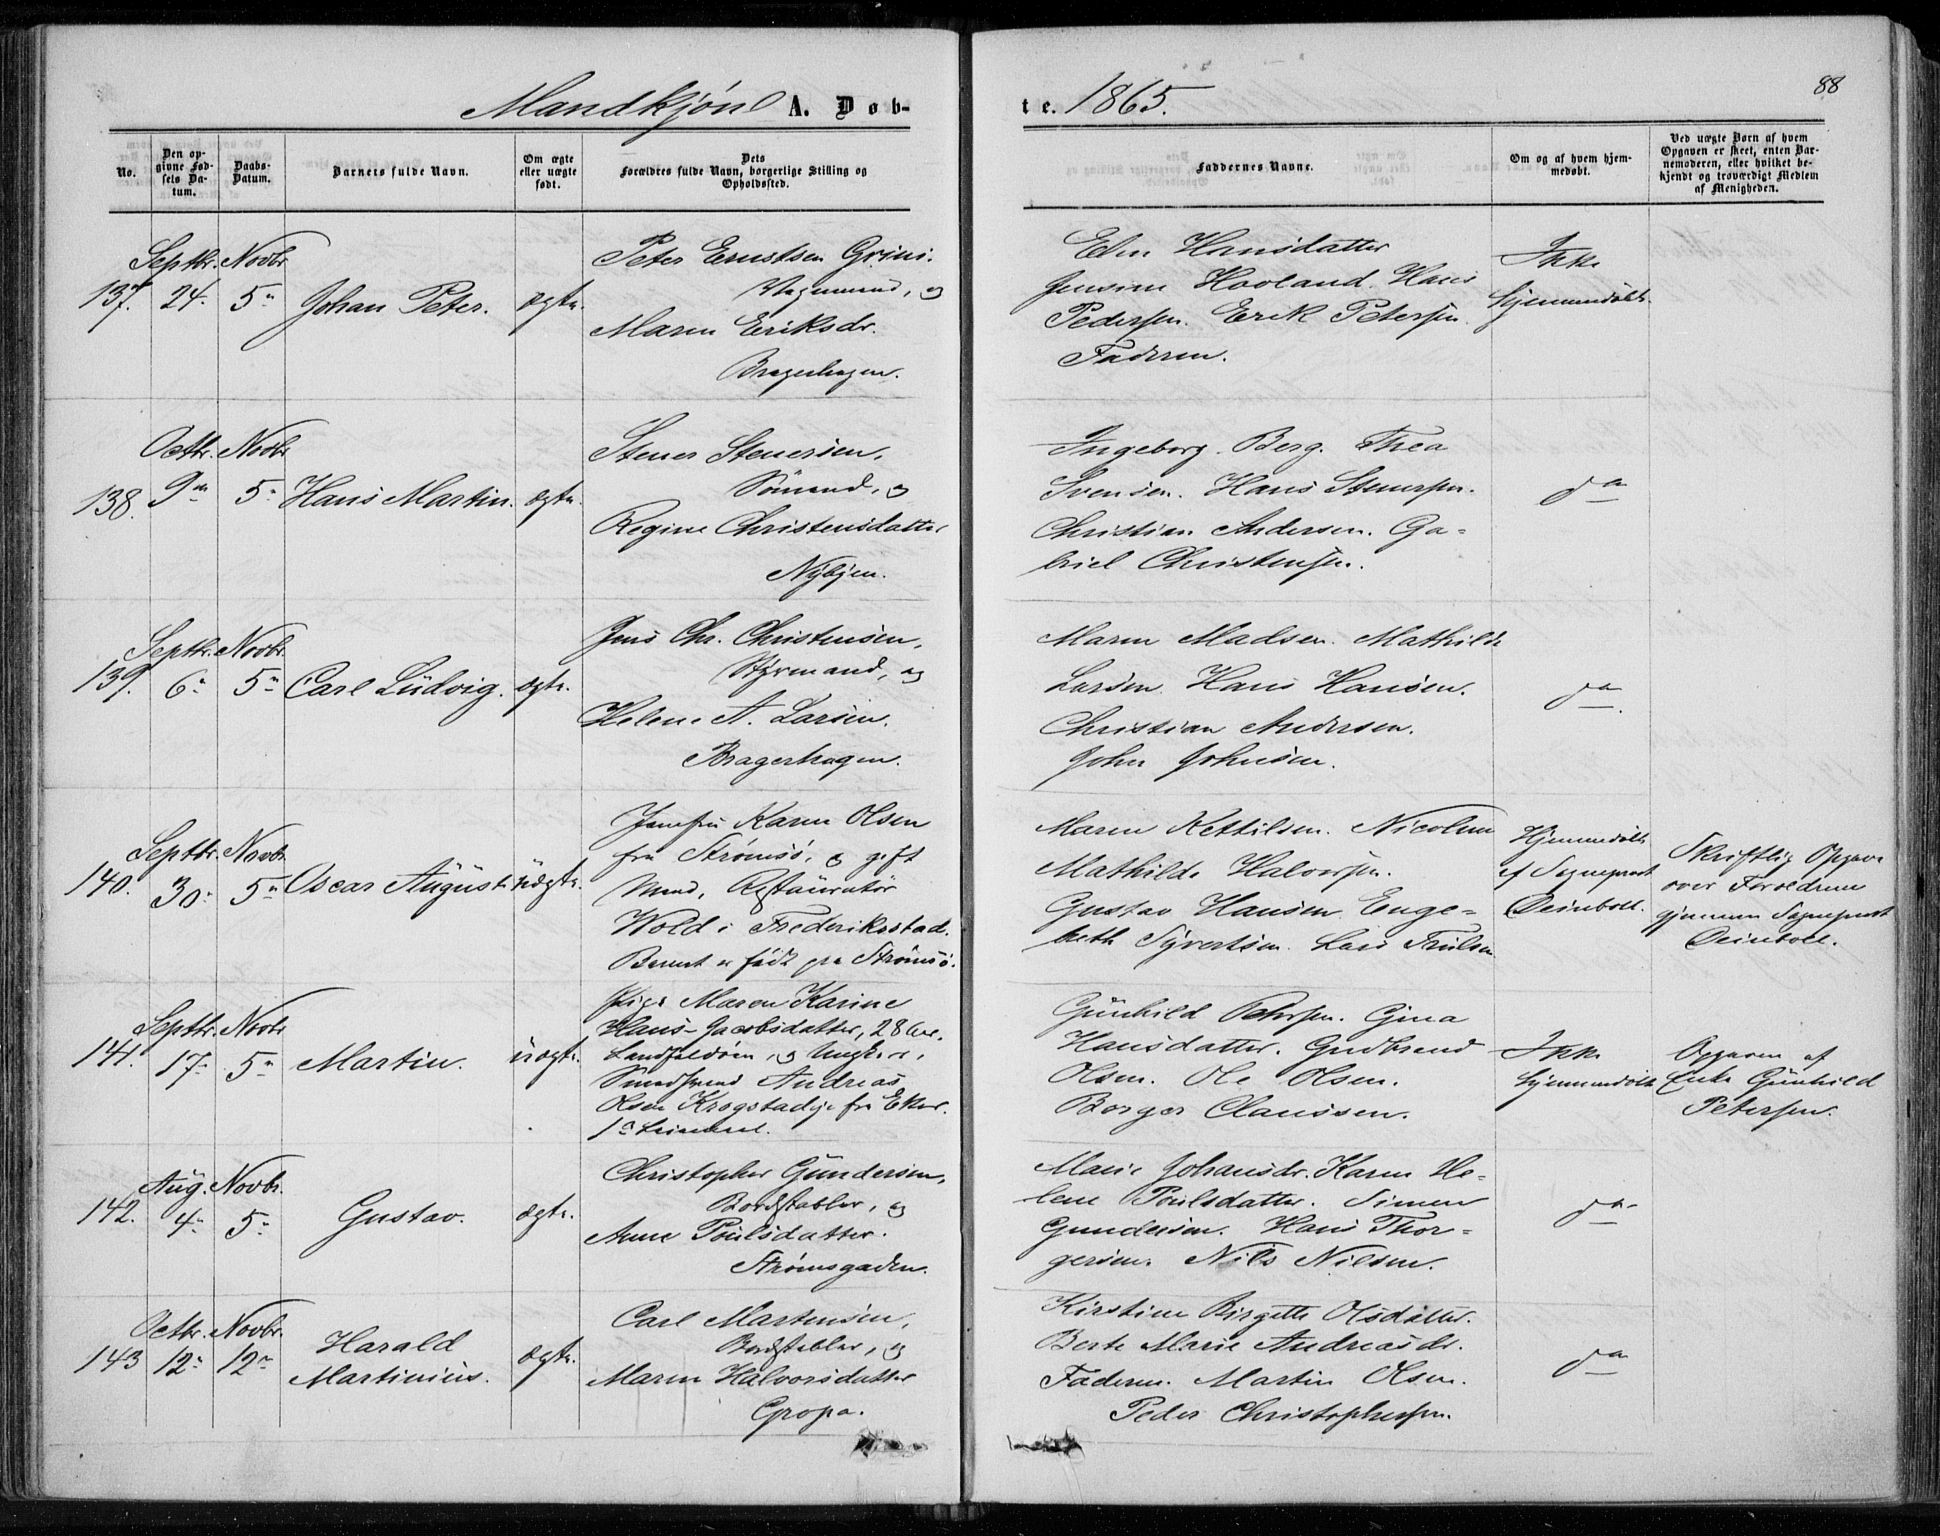 Mandkjøn A. Døb-
te. 1865.
88
No.
Den op-
givne Fød-
sels Da-
tum.
Daabs-
Datum.
Barnets fulde Navn.
Om ægte
eller uægte
født.
Dets
Forældres fulde Navn, borgerlige Stilling og
Opholdssted.
Faddernes Navne.
Om og af hvem hjem-
medøbt.
Ved uægte Børn af hvem
Opgaven er skeet, enten Bar-
nemoderen, eller hvilket be-
kjendt og troværdigt Medlem
af Menigheden.
Septbr. Novbr
137. 24. 5te Johan Peter. ægte.
Peter Ernstsen Grini.
og
Maren Eriksdr.
Bragerhagen.
Elen Hansdatter
Jensine Hovland. Hans
Pedersen. Erik Petersen
Faderen.
Ikke
hjemmedøbt.
Octbr. Novbr
138. 9de 5te Hans Martin. ægte.
Stener Stenersen,
Sømand, og
Regine Christensdatter
Nybyen.
Ingeborg Berg. Thea
Svensen. Hans Stenersen.
Christian Andersen. Ga-
briel Christensen.
do
Septbr. Novbr.
139. 6te 5te Carl Ludvig. ægte.
Jens Chr. Christensen,
Styrmand, og
Helene A. Larsen.
Bragerhagen.
Maren Madsen. Mathilde
Larsen. Hans Hansen.
Christian Andersen.
John Johnsen.
do
Septbr. Novbr.
140. 30te 5te Oscar August. uægte.
Jomfru Karen Olsen
fra Strømsø, og gift
Mand, Restauratør
Wold i Frederiksstad.
Barnet er født paa Strømsø.
Maren Kettilsen. Nicoline
Mathilde Halvorsen.
Gustav Hansen. Enge-
breth Syvertsen. Lars
Hjemmedøbt
af Sognepræst
Deinboll.
Skriftlig Opgave
over Forældrene
gjennem Sognepræst
Deinboll.
Septbr. Novbr
141. 17de 5te Martin. uægte.
Pige Maren Karine
Hans-Jacobsdatter, 28 Aar.
Landfaldøen, og Ungkarl,
Andreas
Olsen Krogstadeje fra Eker.
1ste Leiermaal.
Gunhild Petersen. Gina
Hansdatter. Gudbrand
Olsen. Ole Olsen.
Borger Claussen.
Ikke
hjemmedøbt
Opgaven af
Enke Gunhild
Petersen.
Aug. Novbr.
142. 4de 5te Gustav. ægte.
Christopher Gundersen,
Bordstabler, og
Anne Poulsdatter.
Strømsgaden.
Marie Johansdr. Karen He-
lene Poulsdatter. Simen
Gundersen. Hans Thor-
gersen. Nils Nilsen.
do
Octbr. Novbr.
143 12te 12te Harald
Martinius. ægte.
Carl Martensen,
Bordstabler, og
Maren Halvorsdatter
Gropa.
Kirstine Birgitte Olsdatter.
Berte Marie Andreasdr.
Faderen. Martin Olsen.
Peder Christophersen.
do